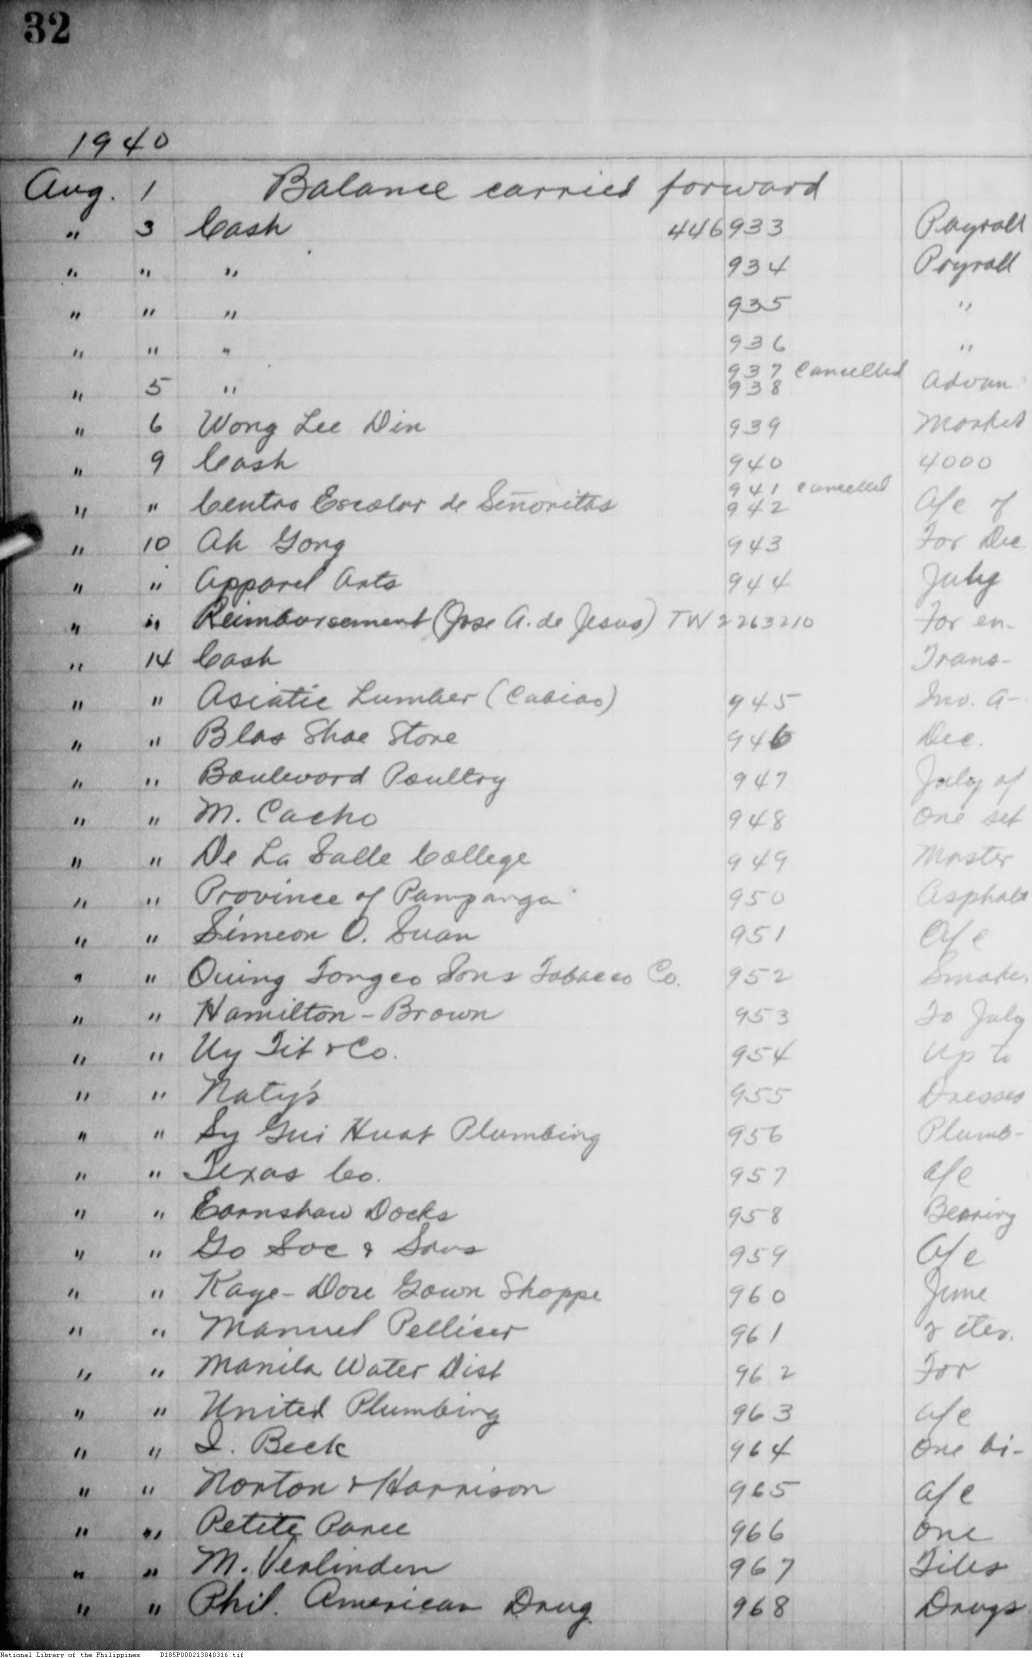 32
1940
Aug. 1 Balance carried forward
" 3 Cash 446933 Payroll
" " " 934 Payroll
" " " 935 "
" " " 936 "
937 Cancelled
" 5 " 938 Advan
" 6 Wong Lee Din 939 Market
" 9 Cash 940 4000
941 cancelled
" " Centro Escolar de Señoritas 942 a/c of
" 10 Ah Gong 943 For Dec
" " Apparel Arts 944 July
" " Reimbursement (Jose A. de Jesus) TW 2263210 For en-
" 14 Cash Trans-
" " Asiatic Lumber (Cabiao) 945 Inv. a-
" " Blas Shoe Store 946 Dec.
" " Boulevard Poultry 947 July of
" " M. Cacho 948 One set
" " De La Salle College 949 Master
" " Province of Pampanga 950 Asphalt
" " Simeon O. Suan 951 a/c
" " Quing Tongco Sons Tobacco Co. 952 Smokes
" " Hamilton-Brown 953 To July
" " Uy Tit & Co. 954 Up to
" " Naty's 955 Dresses
" " Sy Gui Huat Plumbing 956 Plumb-
" " Texas Co. 957 a/c
" " Earnshaw Docks 958 Bearing
" " Go Soc & Sons 959 a/c
" " Kaye-Dore Gown Shoppe 960 June
" " Manuel Pellicer 961 2 ites.
" " Manila Water Dist 962 For
" " United Plumbing 963 a/c
" " I. Beck 964 One bi-
" " Norton & Harrison 965 a/c
" " Petite Paree 966 One
" " M. Verlinden 967 Tiles
" " Phil. American Drug 968 Drugs
National Library of the Philippines D185P000213840316.tif